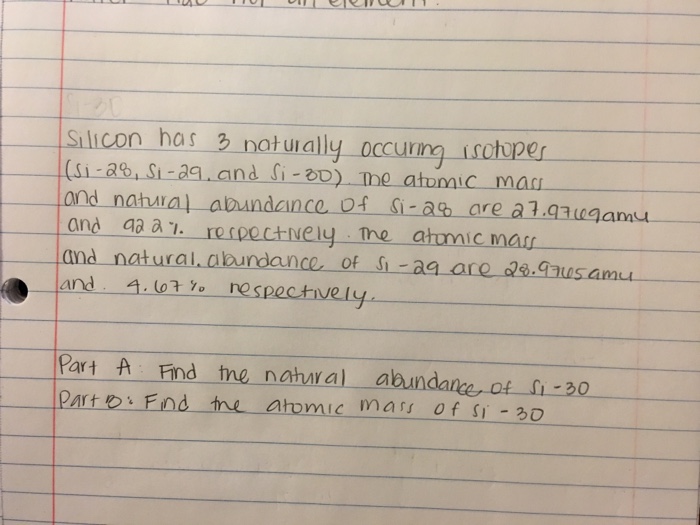 element.
Silicon has 3 naturally occuring isotopes
(Si-28, Si-29, and Si-30) The atomic mass
and natural abundance of Si-28 are 27.9769amu
and 92.2% respectively. The atomic mass
and natural abundance of Si-29 are 28.9765amu
and 4.67% respectively.
Part A: Find the natural abundance of Si-30
Part B: Find the atomic mass of Si-30